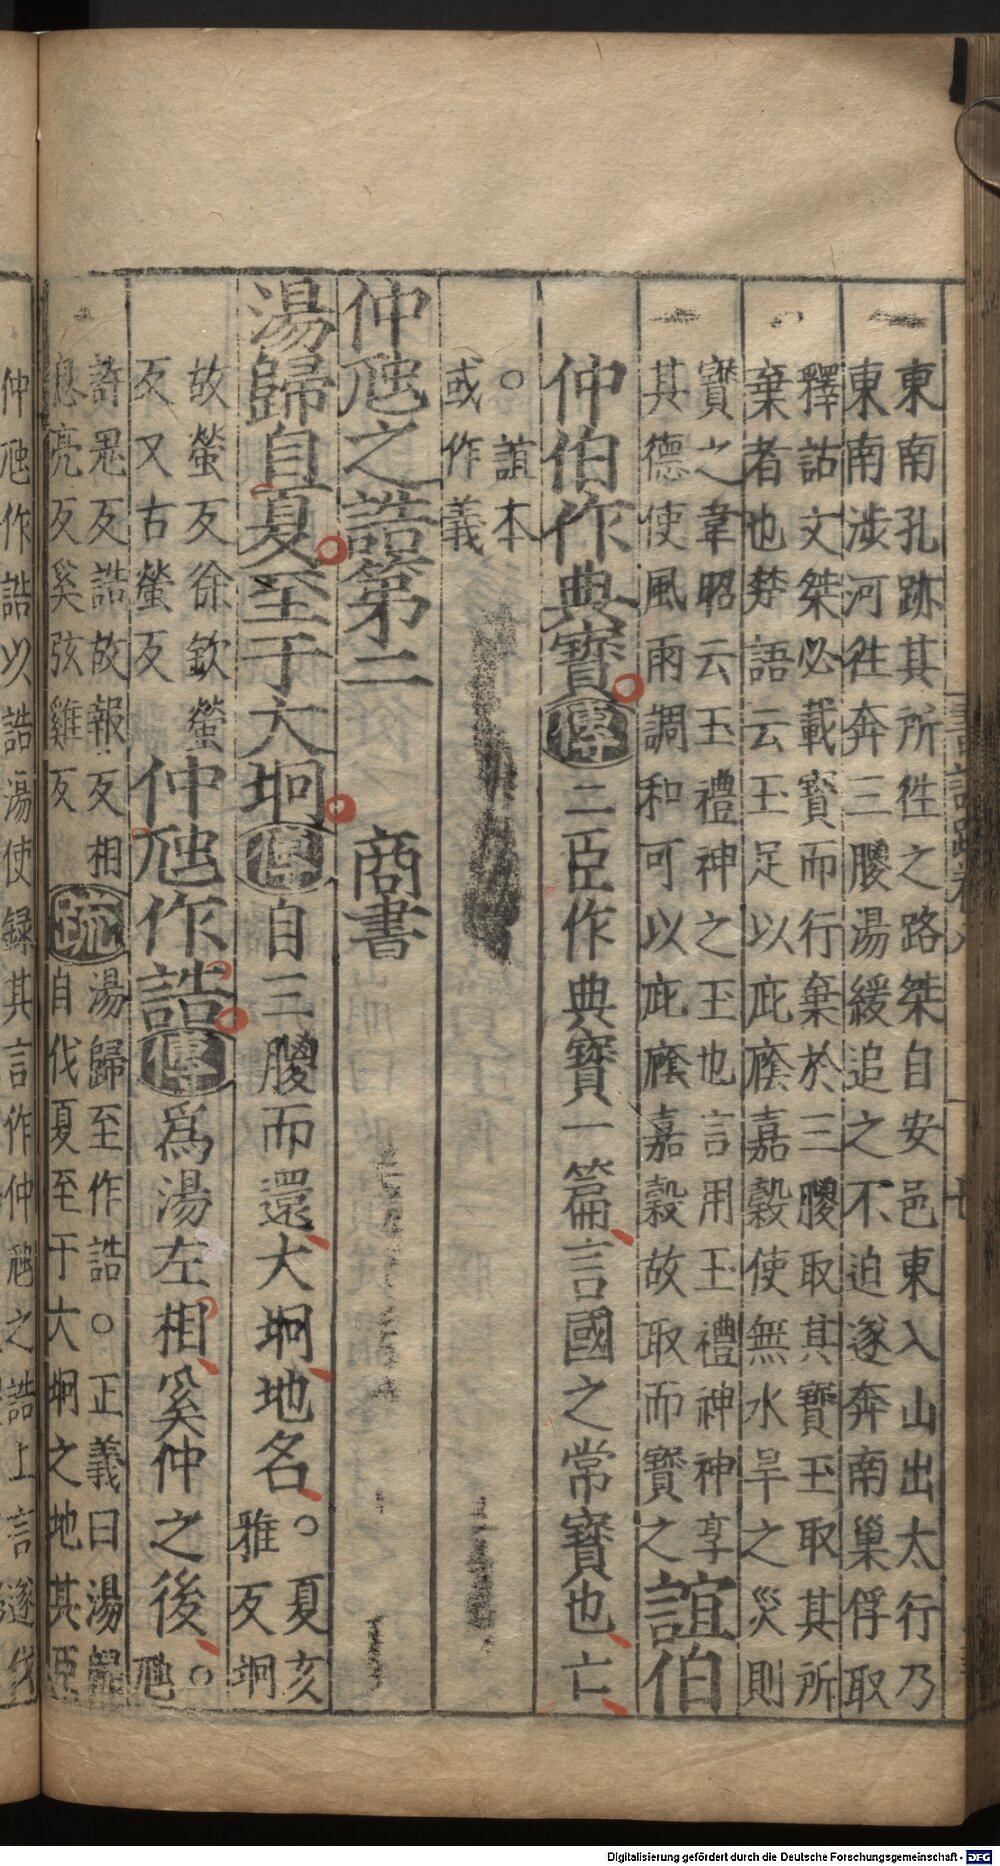 東南孔跡其所徃之路桀自安邑東入山出太行乃
東南涉河徃奔三朡湯緩追之不迫遂奔南巢俘取
釋詁文桀必載寳而行棄於三朡取其寳玉取其所
棄者也楚語云玉足以庇廕嘉榖使無水旱之災則
寳之韋昭云玉禮神之玉也言用玉禮神神享
其德使風雨調和可以庇廕嘉榖故取而寳之誼伯
仲伯作典寳傳二臣作典寳一篇言國之常寳也亡
○誼本
或作義
仲虺之誥第二 商書
湯歸自夏至于大坰傳自三朡而還大坰地名○夏亥
雅反坰
故螢反徐欽螢
反又古螢反仲虺作誥傳爲湯左相奚仲之後○
虺
許鬼反誥故報反相
息亮反奚弦雞反疏湯歸至作誥○正義曰湯歸
自伐夏至于大坰之地其臣
仲虺作誥以誥湯使録其言作仲虺之誥上言遂伐
Digitalisierung gefördert durch die Deutsche Forschungsgemeinschaft - DFG